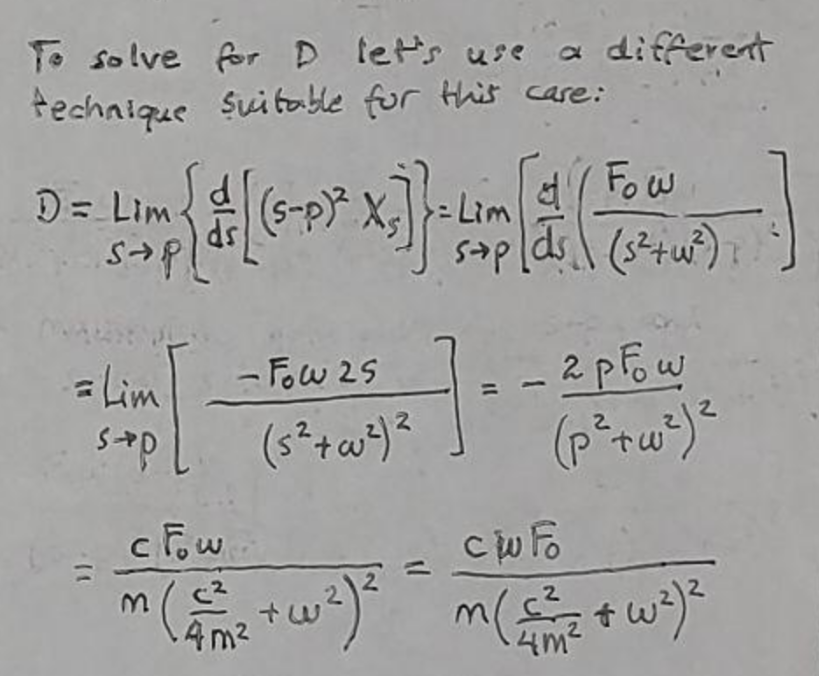 To solve for D let's use a different
technique suitable for this case:
D = Lim s→p { d/ds [ (s-p)² Xₛ ] } = Lim s→p [ d/ds ( F₀ω / (s²+ω²) ) ]
= Lim s→p [ -F₀ω2s / (s²+ω²)² ] = - 2pF₀ω / (p²+ω²)²
= cF₀ω / m(c²/4m² + ω²)² = cωF₀ / m(c²/4m² + ω²)²